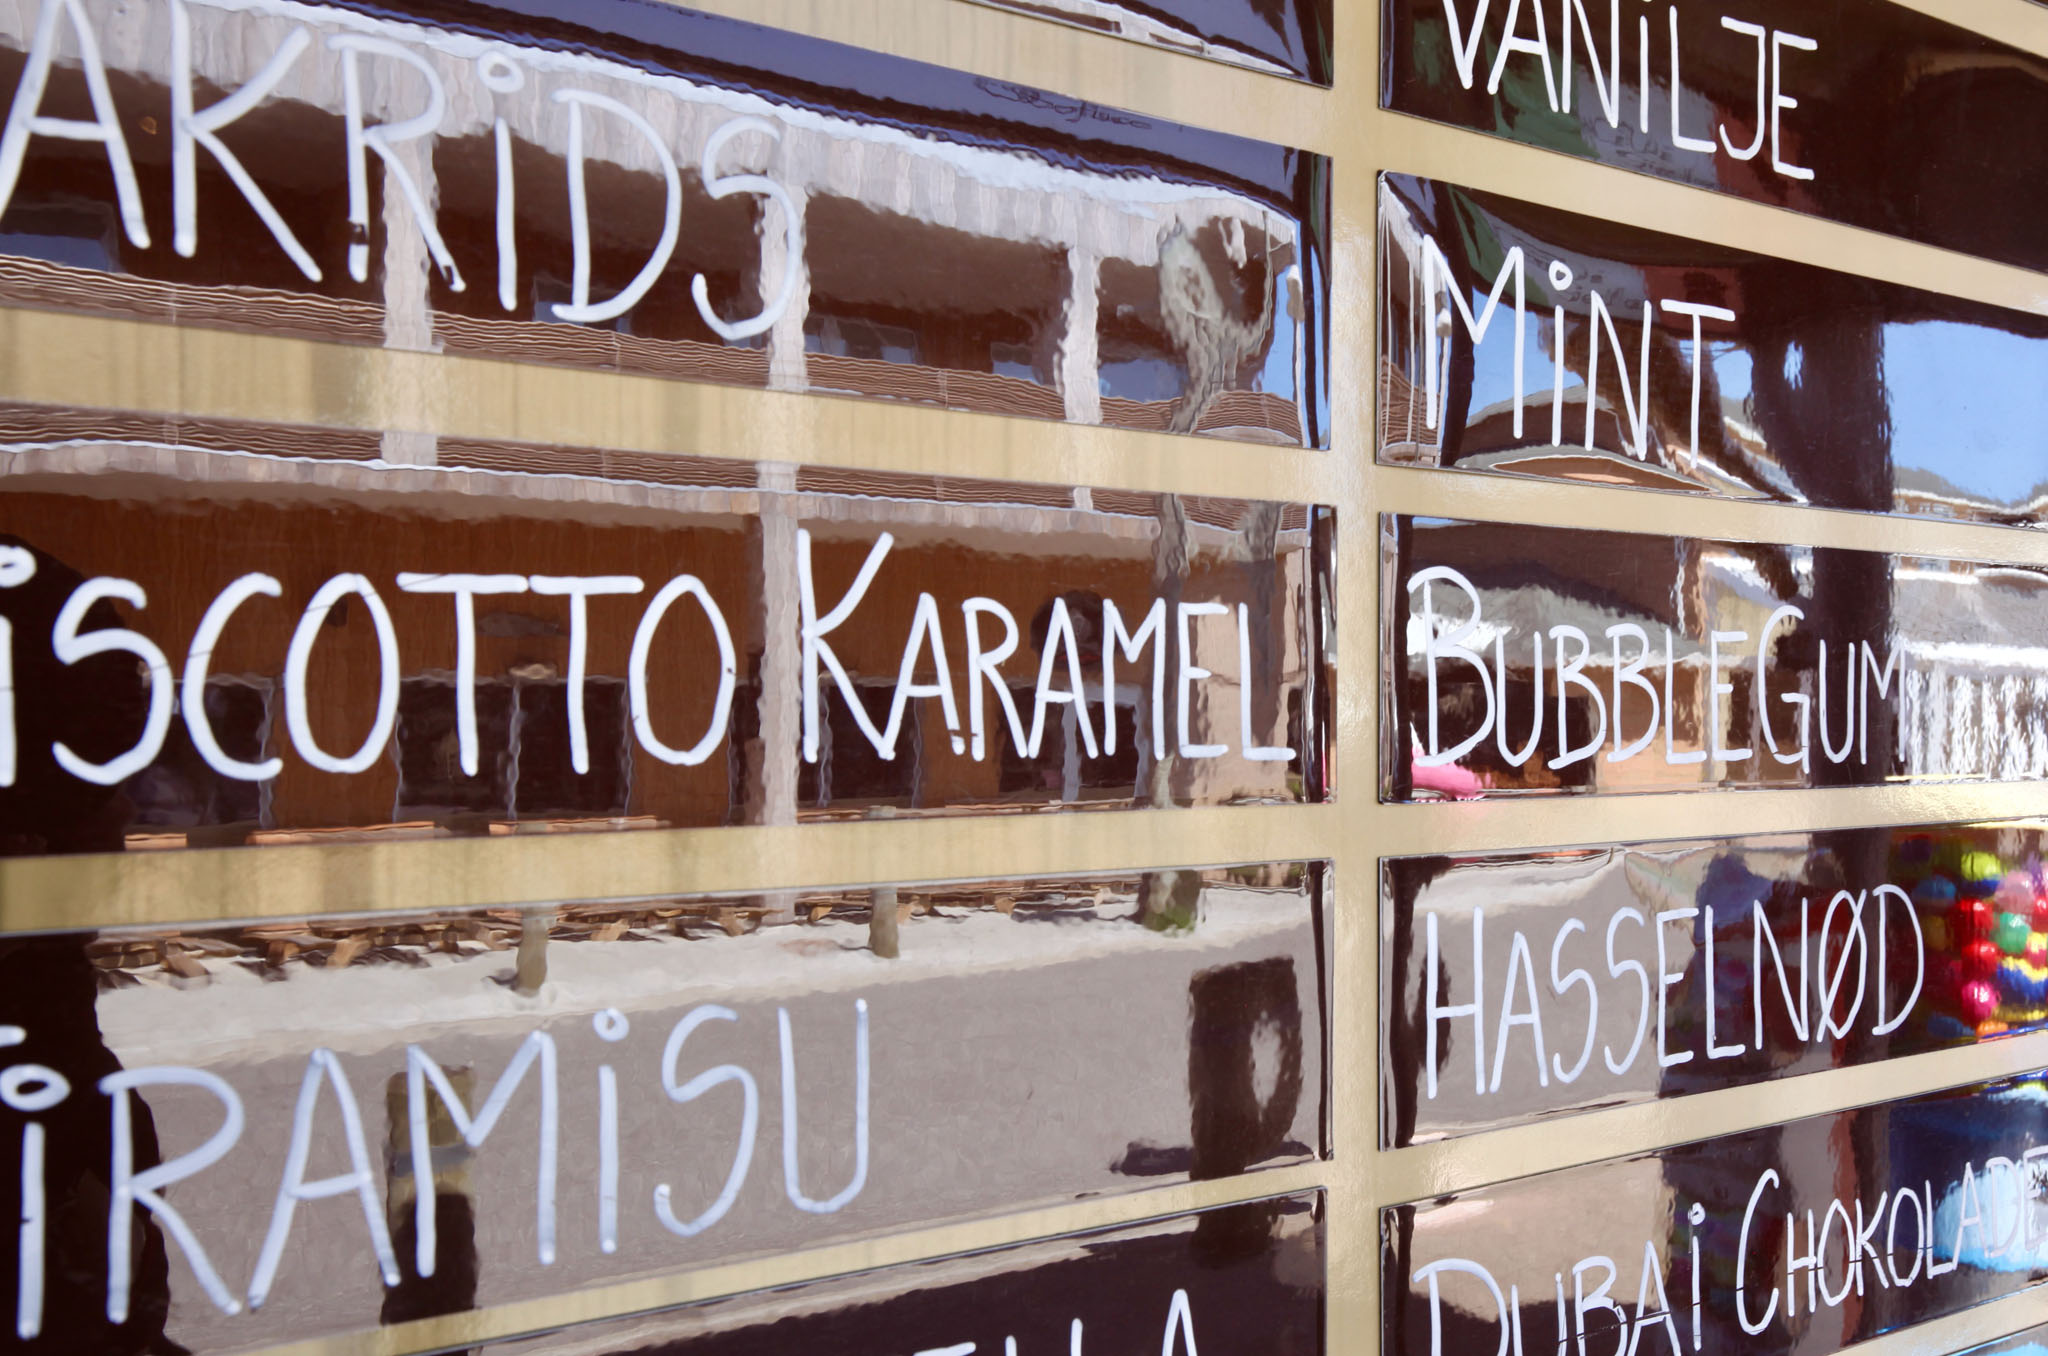 AKRiDS
iSCOTTO KARAMEL
iRAMiSU
LLA
VANiLJE
MiNT
BUBBLEGUM
HASSELNØD
DUBAi CHOKOLADE